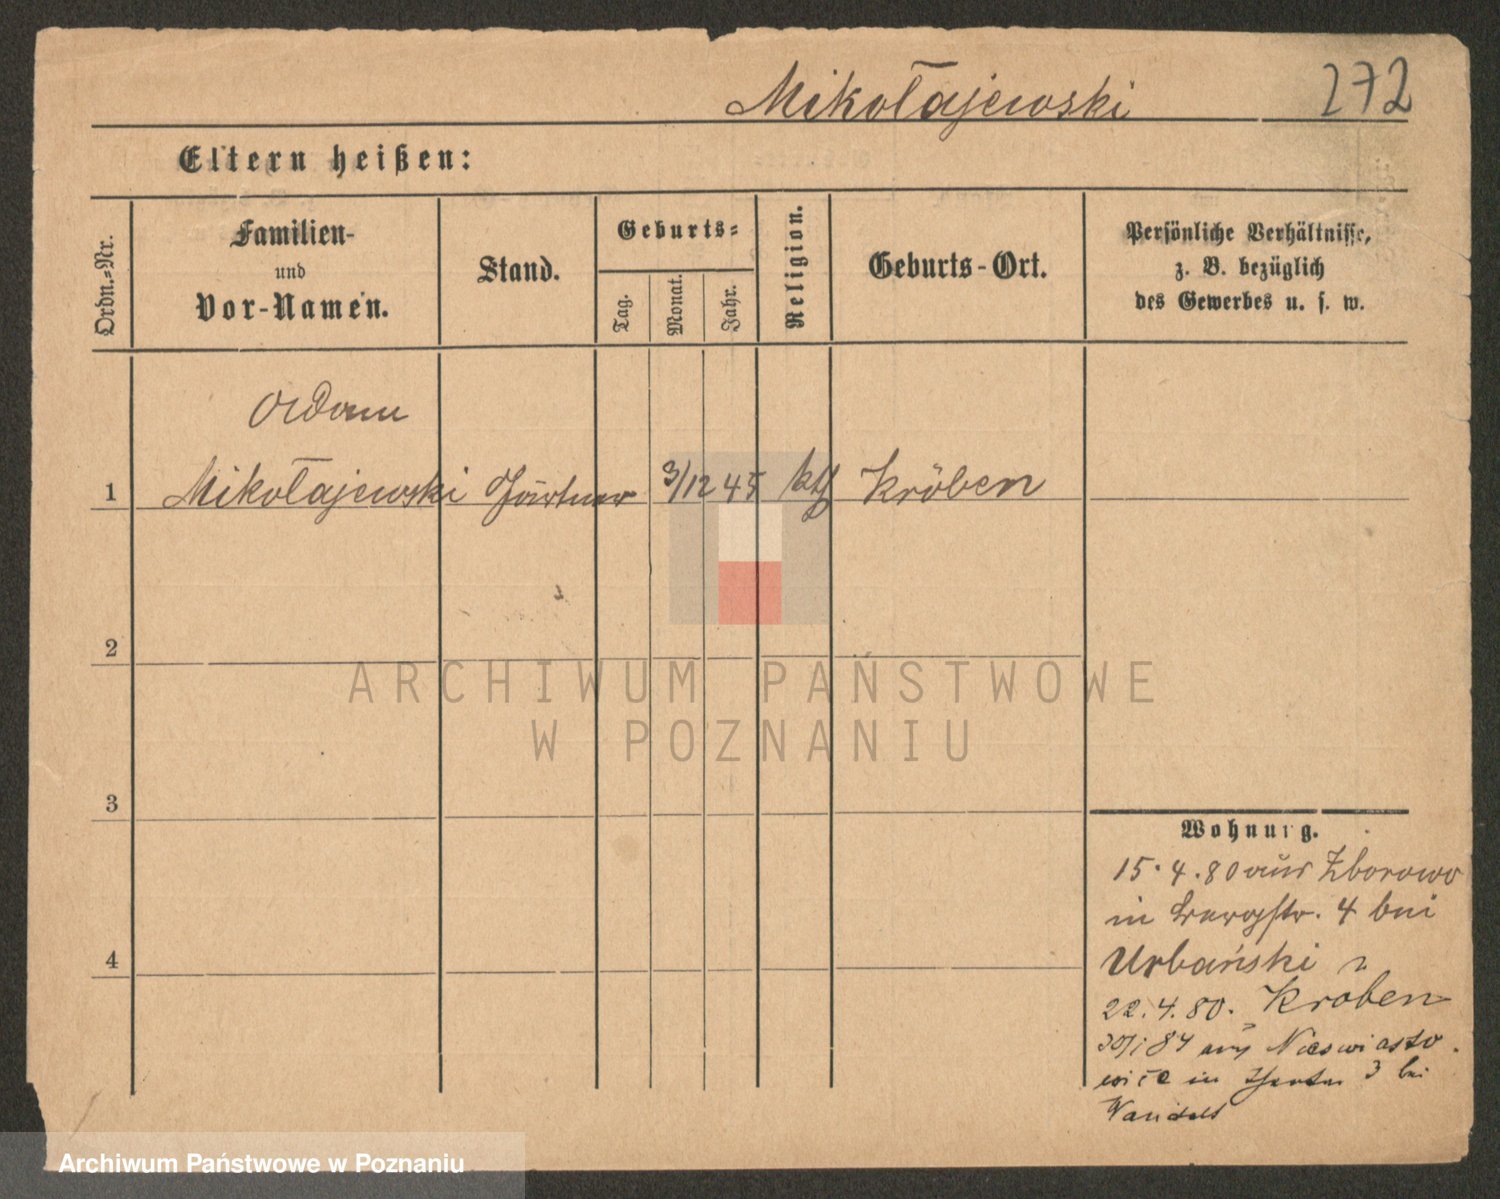 Mikołajewski 272
Eltern heißen:
Ordn.-Nr.
Familien-
und
Vor-Namen.
Stand.
Geburts-
Tag.
Monat.
Jahr.
Religion.
Geburts-Ort.
Persönliche Verhältnisse,
z. B. bezüglich
des Gewerbes u. s. w.
Adam
1 Mikołajewski Gärtner 3/12 45 kth Kröben
2
3
4
Wohnung.
15.4.80 aus Zborowo
in 4 bei
Urbański n
22.4.80. Kroben
84 aus
in 3 bei
ARCHIWUM PAŃSTWOWE
W POZNANIU
Archiwum Państwowe w Poznaniu